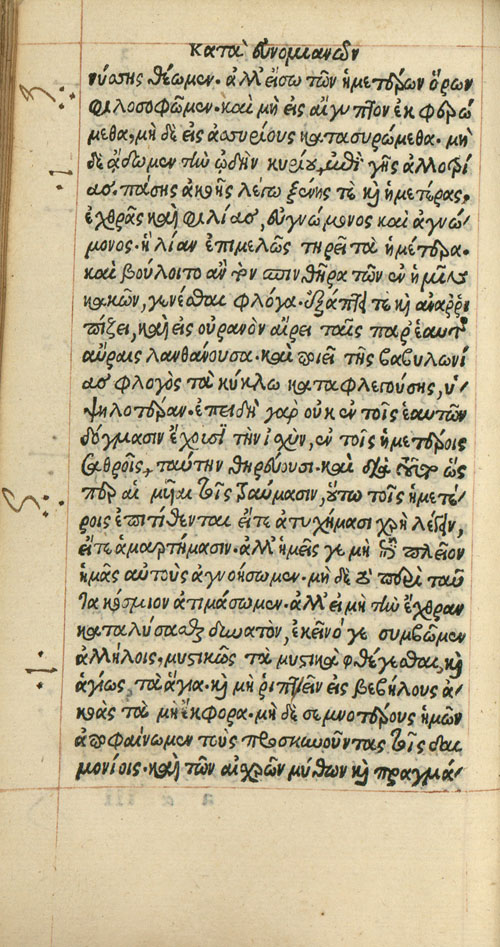 Κατὰ Εὐνομιανῶν
νύσσης θέωμεν. ἀλλ' εἴσω τῶν ἡμετέρων ὅρων
φιλοσοφῶμεν. καὶ μὴ εἰς αἴγυπτον ἐκφερώ
μεθα, μὴ δὲ εἰς ἀσσυρίους κατασυρώμεθα. μὴ
δὲ ᾄδωμεν τὴν ᾠδὴν κυρίου, ἐπὶ γῆς ἀλλοτρί
ας. πάσης ἀκοῆς λέγω ξένης τὲ καὶ ἡμετέρας,
ἐχθρᾶς καὶ φιλίας, εὐγνώμονος καὶ ἀγνώ-
μονος. ἣ λίαν ἐπιμελῶς τηρεῖ τὰ ἡμέτερα.
καὶ βούλοιτο ἂν τὸν σπινθῆρα τῶν ἐν ἡμῖν
κακῶν, γενέσθαι φλόγα. ἐξάπτει τὲ καὶ ἀναρρι
πίζει, καὶ εἰς οὐρανὸν αἴρει ταῖς παρ' ἑαυτῆς
αὔραις λανθάνουσα. καὶ ποιεῖ τῆς βαβυλωνί
ας φλογὸς τὰ κύκλω καταφλεγούσης, ὑ-
ψηλοτέραν. ἐπειδὴ γὰρ οὐκ ἐν τοῖς ἑαυτῶν
δόγμασιν ἔχουσι τὴν ἰσχὺν, ἐν τοῖς ἡμετέροις
σαθροῖς, ταύτην θηρεύουσι. καὶ διὰ τοῦτο ὥς
περ αἱ μυῖαι τοῖς τραύμασιν, οὕτω τοῖς ἡμετέ-
ροις ἐπιτίθενται εἴτε ἀτυχήμασι χρὴ λέγειν,
εἴτε ἁμαρτήμασιν. ἀλλ' ἡμεῖς γε μὴ ἐπὶ πλεῖον
ἡμᾶς αὐτοὺς ἀγνοήσωμεν. μὴ δὲ τὸ περὶ ταῦ
τα κόσμιον ἀτιμάσωμεν. ἀλλ' εἰ μὴ τὴν ἔχθραν
καταλύσασθαι δυνατὸν, ἐκεῖνό γε συμβῶμεν
ἀλλήλοις, μυστικῶς τὰ μυστικὰ φθέγγεσθαι, καὶ
ἁγίως, τὰ ἅγια. καὶ μὴ ῥιπτεῖν εἰς βεβήλους ἀ-
κοὰς τὰ μὴ ἔκφορα. μὴ δὲ σεμνοτέρους ἡμῶν
ἀποφαίνωμεν τοὺς προσκυνοῦντας τοῖς δαι
μονίοις. καὶ τῶν αἰσχρῶν μύθων καὶ πραγμά-